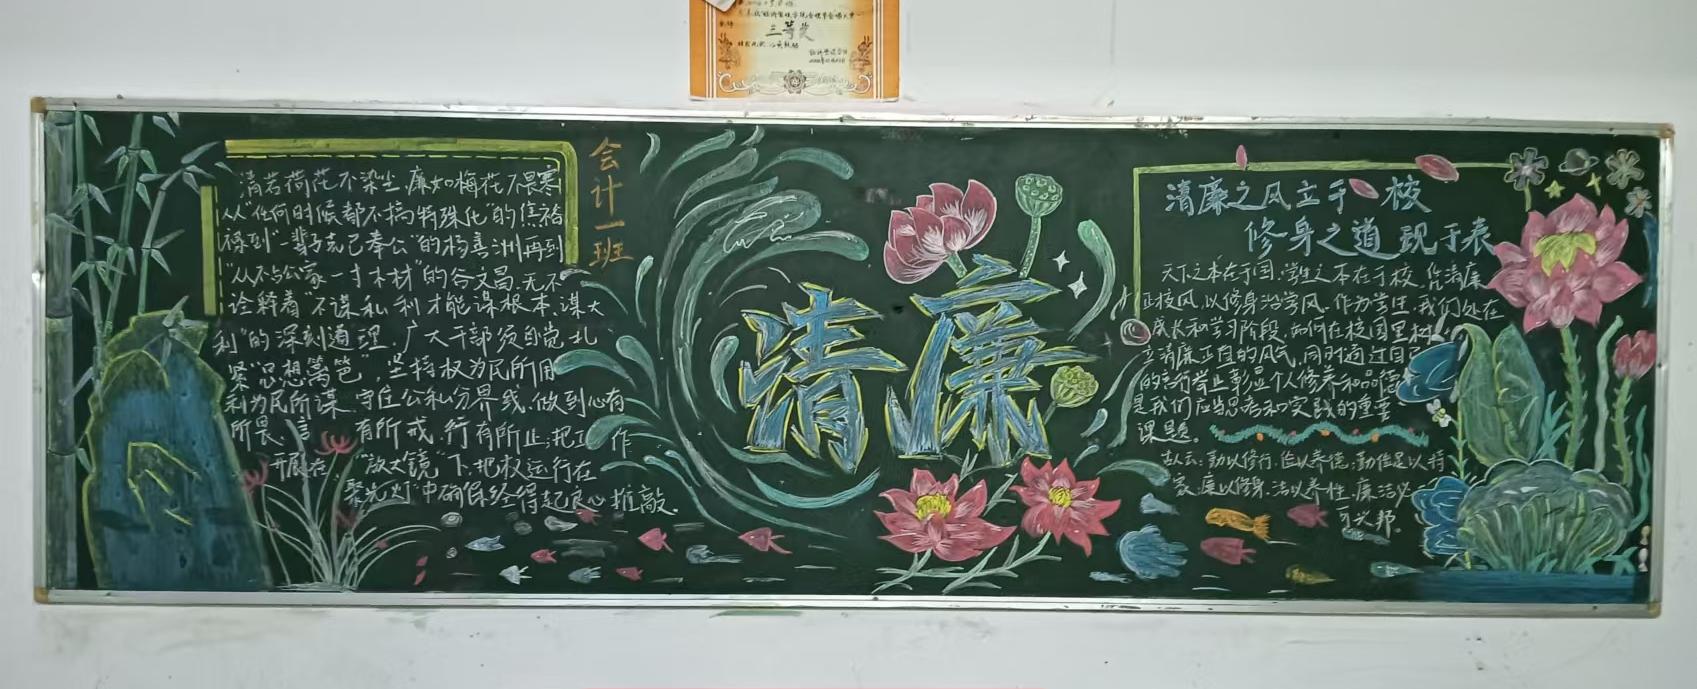 三等奖
清若荷花不染尘,廉如梅花不畏寒
从“任何时候都不搞特殊化”的焦裕
禄到“一辈子克己奉公”的杨善洲再到
“从不占公家一寸木材”的谷文昌,无不
诠释着“不谋私利才能谋根本、谋大
利”的深刻道理,广大干部须自觉扎
紧“思想篱笆”,坚持权为民所用
利为民所谋,守住公私分界线,做到心有
所畏、言 有所戒、行有所止;把工作
开展在 “放大镜”下,把权运行在
聚光灯”中确保经得起良心推敲.
会计一班
清廉
清廉之风立于校
修身之道现于表
天下之本在于国,学生之本在于校,以清廉
正校风,以修身治学风.作为学生,我们处在
成长和学习阶段,如何在校园里树
立清廉正直的风气,同时通过自己
的言行举止彰显个人修养和品德
是我们应当思考和实践的重要
课题。
古人云:勤以修行,俭以养德;勤俭足以持
家,廉以修身,洁以养性,廉洁必
可兴邦。